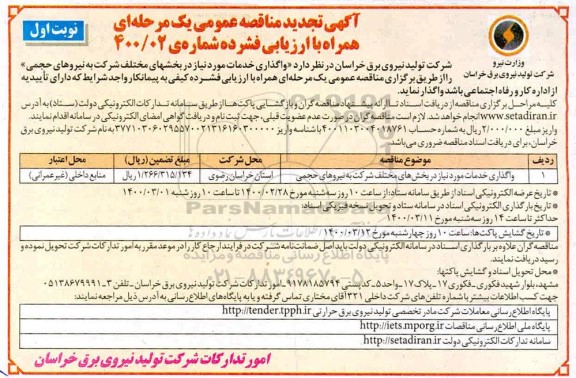 آگهی تجدید مناقصه عمومی یک مرحله‌ای
همراه با ارزیابی فشرده شماره‌ی ۴۰۰/۰۲
نوبت اول
وزارت نیرو
شرکت تولید نیروی برق خراسان
شرکت تولید نیروی برق خراسان در نظر دارد «واگذاری خدمات مورد نیاز در بخشهای مختلف شرکت به نیروهای حجمی»
را از طریق برگزاری مناقصه عمومی یک مرحله‌ای همراه با ارزیابی فشرده کیفی به پیمانکار واجد شرایط که دارای تأییدیه
از اداره کار و رفاه اجتماعی باشد واگذار نماید.
کلیه مراحل برگزاری مناقصه از دریافت اسناد تا ارائه پیشنهاد مناقصه گران و بازگشایی پاکت‌ها از طریق سامانه تدارکات الکترونیکی دولت (ستاد) به آدرس
www.setadiran.ir انجام خواهد شد. لازم است مناقصه گران در صورت عدم عضویت قبلی، جهت ثبت نام و دریافت گواهی امضای الکترونیکی در سامانه اقدام نمایند.
واریز مبلغ ۲/۰۰۰/۰۰۰ ریال به شماره حساب با شناسه واریز به نام شرکت تولید نیروی برق
خراسان، برای دریافت اسناد مناقصه ضروری می‌باشد.
ردیف موضوع مناقصه محل شرکت مبلغ تضمین (ریال) محل اعتبار
۱ واگذاری خدمات مورد نیاز در بخش های مختلف شرکت به نیروهای حجمی استان خراسان رضوی ۱/۲۶۶/۳۱۵/۱۳۴ ریال منابع داخلی (غیرعمرانی)
* تاریخ عرضه الکترونیکی اسناد از طریق سامانه ستاد: از ساعت ۱۰ روز سه شنبه مورخ ۱۴۰۰/۰۲/۲۸ تا ساعت ۱۰ روز شنبه ۱۴۰۰/۰۳/۰۱
* تاریخ بارگذاری الکترونیکی اسناد در سامانه ستاد و تحویل نسخه فیزیکی اسناد:
حداکثر تا ساعت ۱۴ روز سه شنبه مورخ ۱۴۰۰/۰۳/۱۱
* تاریخ گشایش پاکت‌ها: ساعت ۱۰ روز چهارشنبه مورخ ۱۴۰۰/۰۳/۱۲
مناقصه گران علاوه بر بارگذاری اسناد در سامانه الکترونیکی دولت باید اصل ضمانت نامه شرکت در فرایند ارجاع کار را در موعد مقرر به امور تدارکات شرکت تحویل نموده و
رسید دریافت نمایند.
* محل تحویل اسناد و گشایش پاکتها:
مشهد، بلوار شهید فکوری- فکوری ۱۷- پلاک ۱۷- واحد ۵- کدپستی ۹۱۷۸۱۸۵۷۹۴- امور تدارکات شرکت تولید نیروی برق خراسان- تلفن ۳- ۰۵۱۳۸۶۷۹۹۹۱
جهت کسب اطلاعات بیشتر با شماره تلفن‌های شرکت داخلی ۳۲۱ آقای مختاری تماس گرفته و یا به پایگاه‌های اطلاع رسانی به آدرس ذیل مراجعه نمایند:
پایگاه اطلاع رسانی معاملات شرکت مادر تخصصی تولید نیروی برق حرارتی http://tender.tpph.ir
پایگاه ملی اطلاع رسانی مناقصات http://iets.mporg.ir
سامانه تدارکات الکترونیکی دولت http://setadiran.ir
امور تدارکات شرکت تولید نیروی برق خراسان
ParsNamadData
پایگاه اطلاع رسانی مناقصه و مزایده
۰۲۱-۸۸۳۴۹۶۷۰-۵